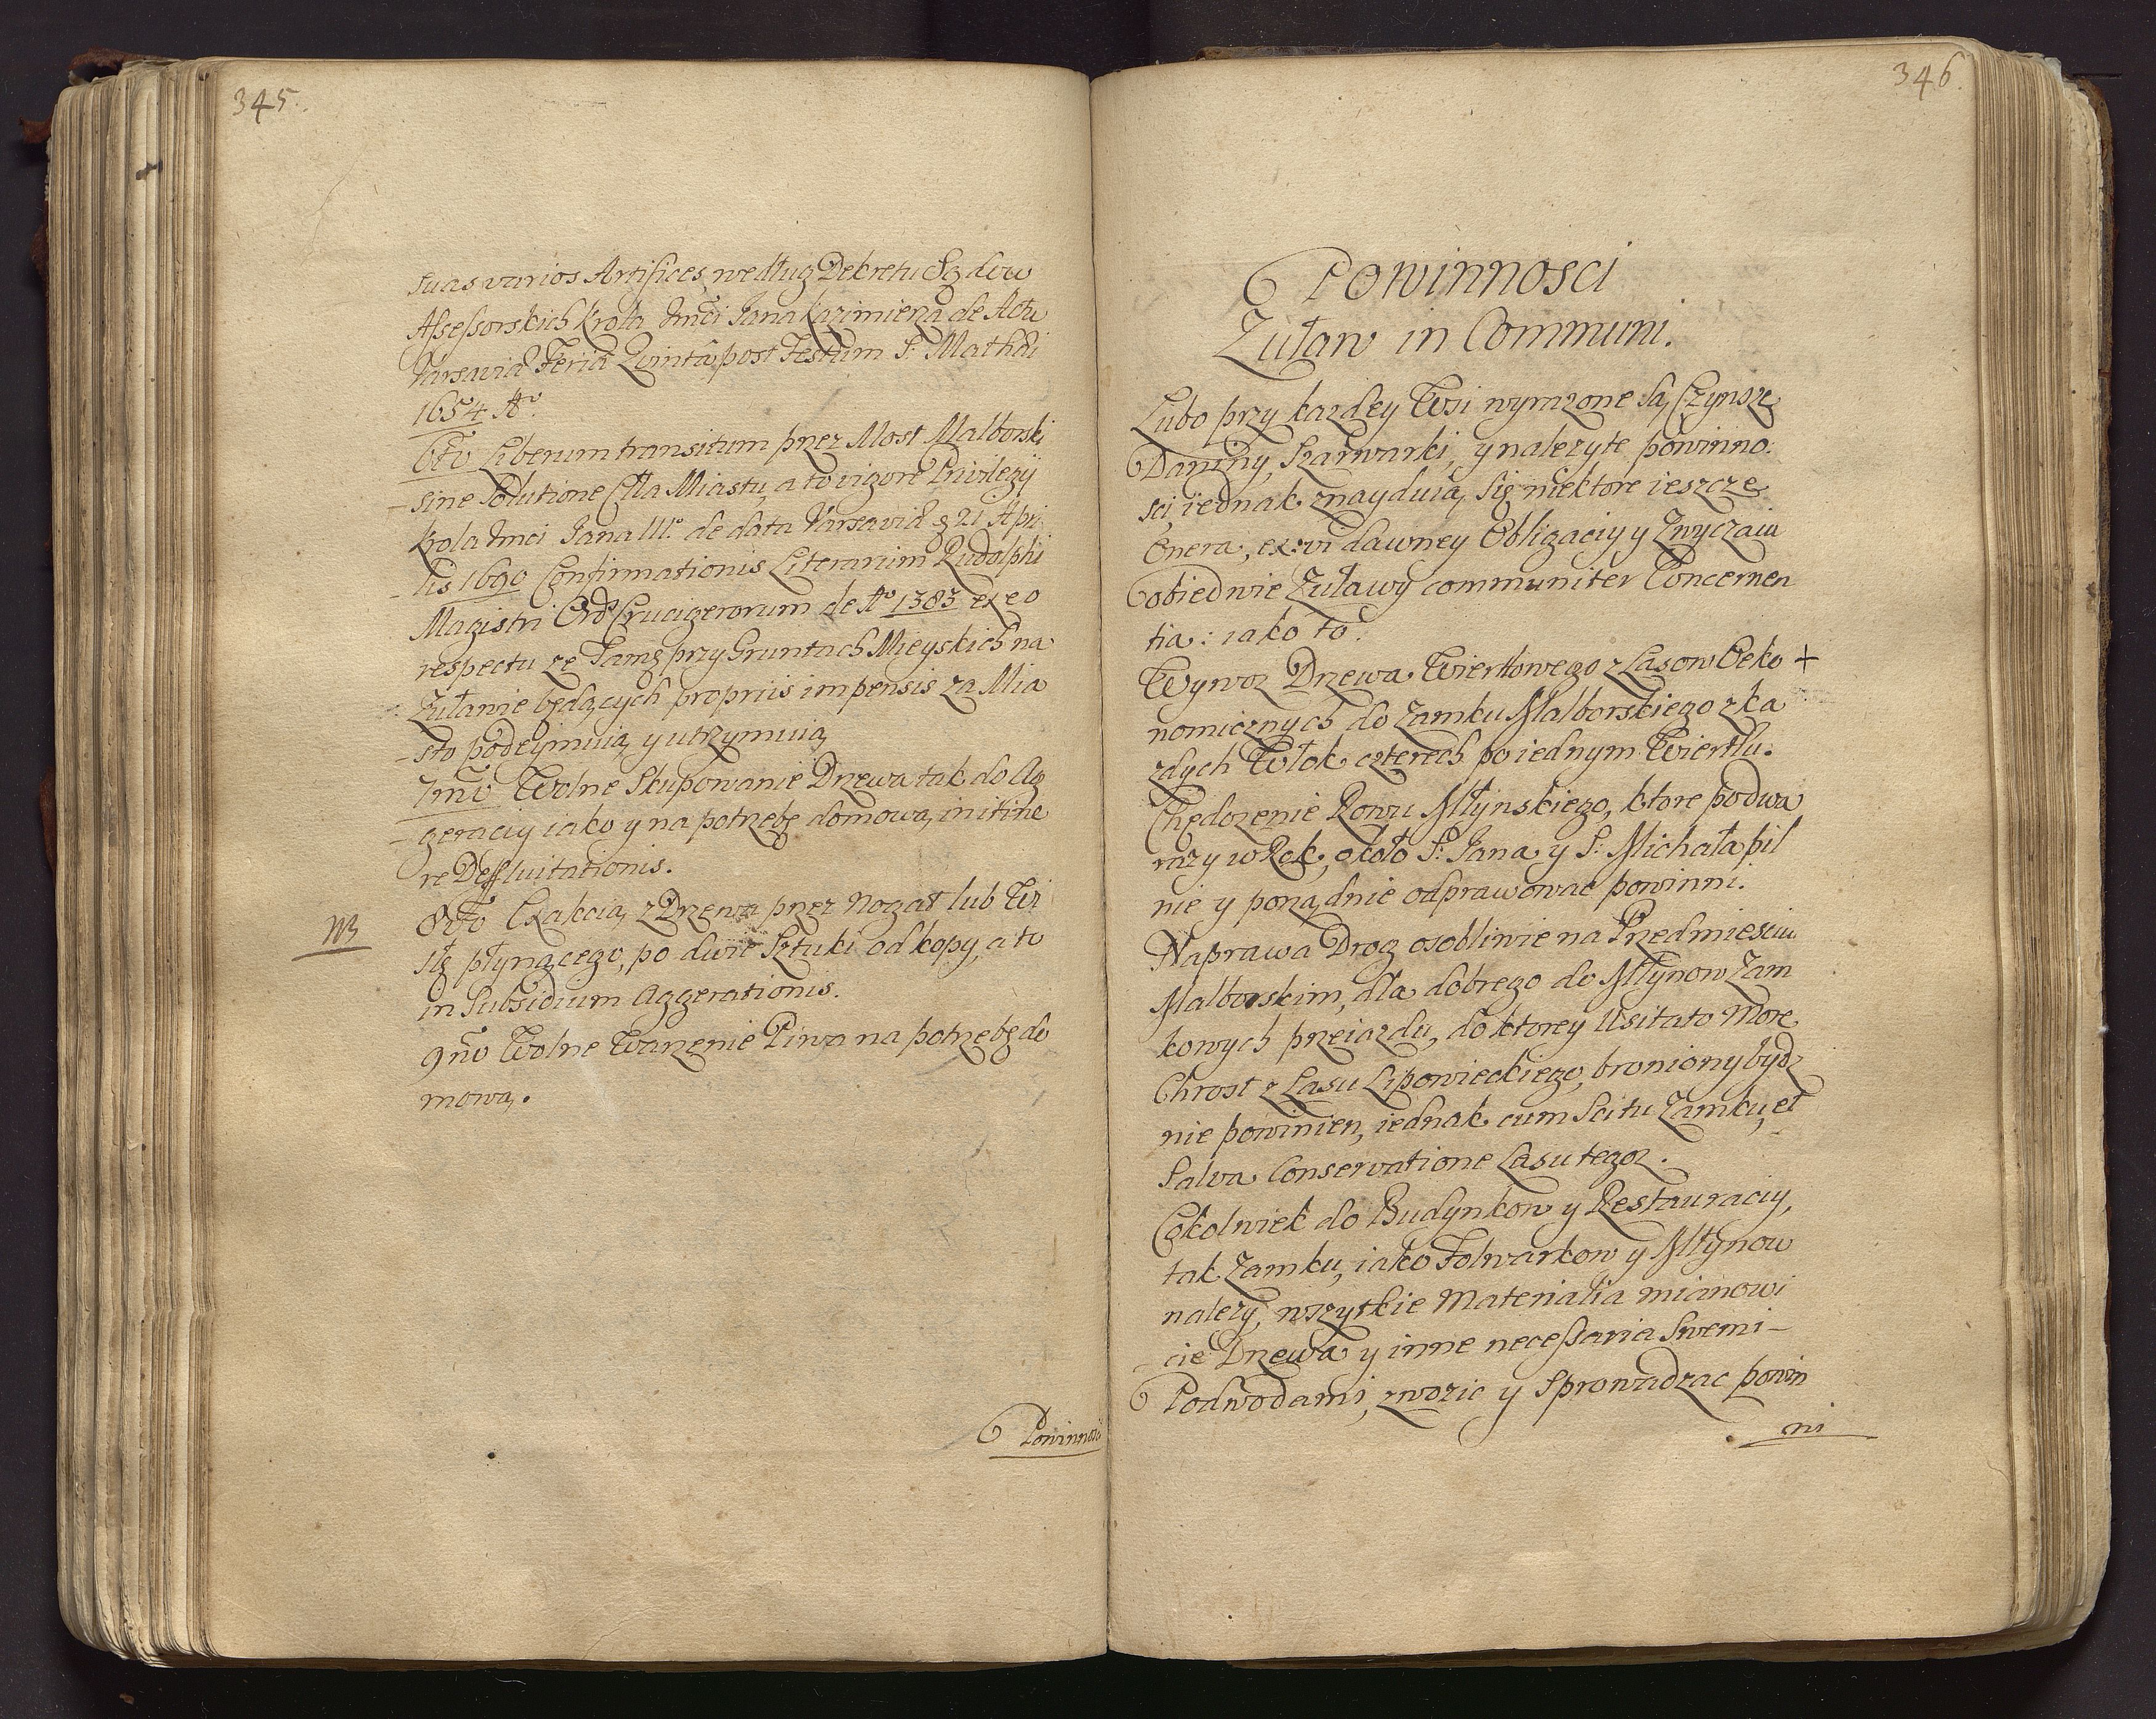 345.
suas varios Artifices, według Dekretu Sądow
Assessorskich Krola Jmci Jana Kazimierza de Actu
Varsaviæ Feria Quinta post Festum S: Mathæi
1654 Aº.
6tò Liberum transitum przez Most Malborski
sine Solutione Cła Miastu, a to vigore Privilegij
Krola Jmci Jana IIIº de data Varsaviæ d 21 Apri
lis 1690 Confirmationis Literarum Rudolphi
Magistri Ordis Crucigerorum de Aº 1383 ex eo
respectu ze Tamę przy Gruntach Mieyskich na
Zuławie będących propriis impensis za Mia
sto podeymuią y utrzymuią
7mò Wolne Skupowanie Drzewa tak do Ag
geracij iako y na potrzebę domową in itine
re Deffluitationis.
NB
8vò Exakcią z Drzewa przez Nogat lub Wi
słę płynącego, po dwie Sztuki od kopy, a to
in Subsidium Aggerationis.
9nò Wolne Warzenie Piwa na potrzebę do
mową.
Powinnosci
346.
Powinnosci
Zuław in Communi.
Lubo przy kazdey Wsi wyrazone są Czynsze
Daniny, Szarwarki, y nalezyte powinno:
sci, iednak znayduią się niektore ieszcze
Onera, ex vi dawney Obligaciy y Zwyczaiu
obiedwie Zuławy communiter Concernen
tia: iako to.
Wywoz Drzewa Wiertlowego z Lasow Oeko +
nomicznych do Zamku Malborskiego z ka
zdych Włok czterech po iednym Wiertlu.
Chędozenie Rowu Młynskiego, ktore po dwa
razy w Rok, około S: Jana y S: Michała pil
nie y porządnie odprawowac powinni.
Naprawa Drog osobliwie na Przedmiesciu
Malborskim, dla dobrego do Młynow Zam
kowych przeiazdu, do ktorey Usitato More
Chrost z Lasu Lipowieckiego, broniony bydz
nie powinien, iednak cum Scitu Zamku, et
Salva Conservatione Lasu tegoz.
Cokolwiek do Budynkow y Restauraciy,
tak Zamku, iako Folwarkow y Młynow
nalezy, wszytkie Materialia mianowi
cie Drzewa y inne necessaria Swemi
Podwodami, zwozic y Sprowadzac powin
ni